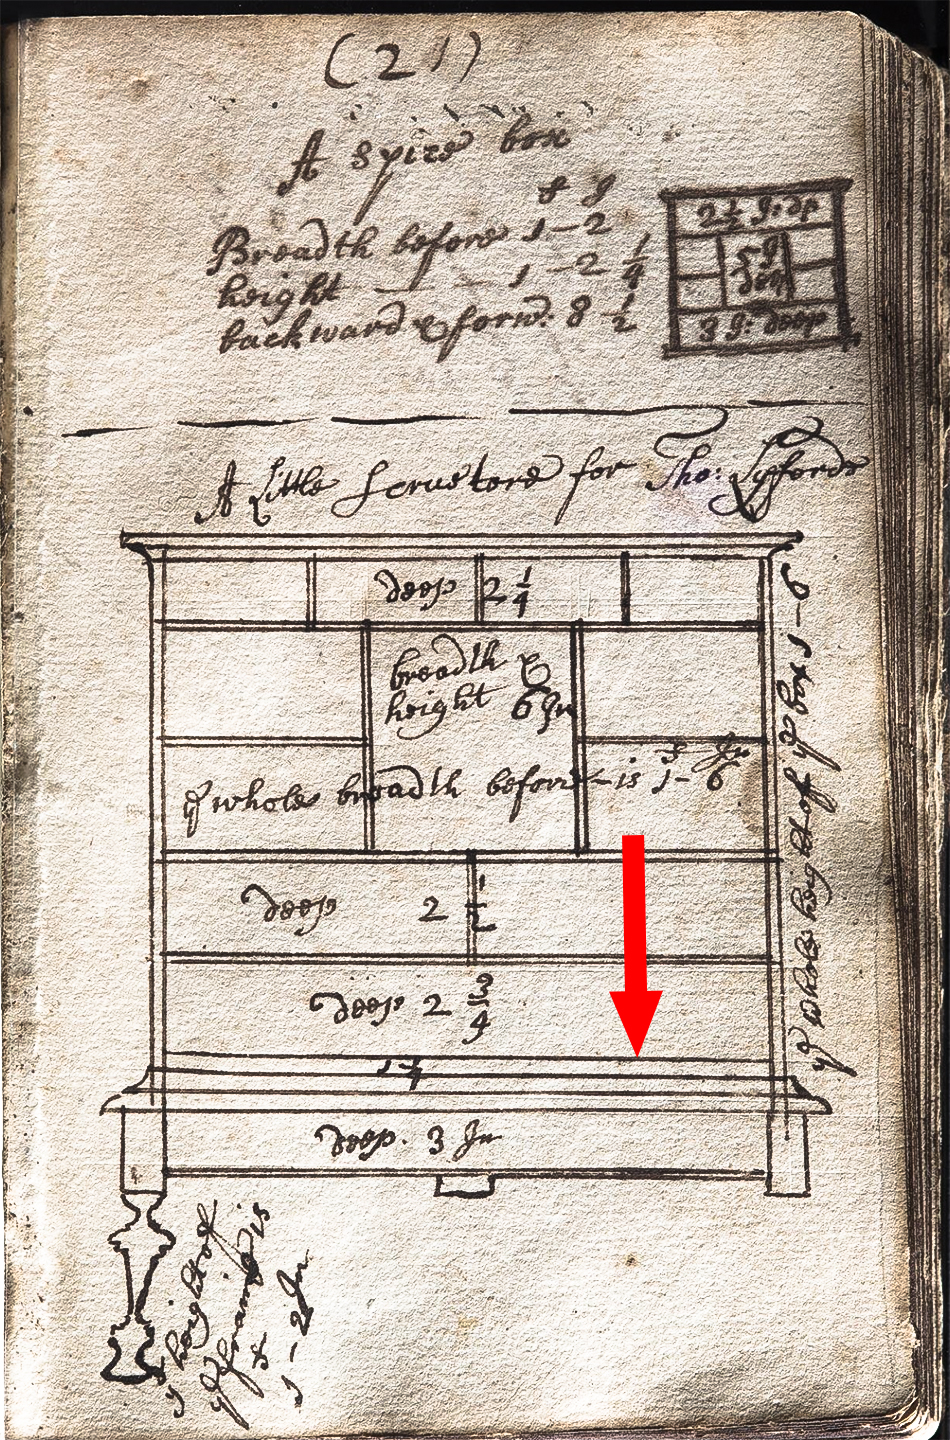 (21)
A spice box
f J
Breadth before 1-2
height — 1 -2 1/4
backward & forw: 8 1/2
2 1/2 J: dp
5 J
deep
3 J: deep
A Little scruetore for Tho: Lyfforde
deep 2 1/4
breadth &
height 6 Jn
f Jn
ye whole breadth before is 1- 6
deep 2 1/2
deep 2 3/4
deep. 3 Jn
ye whole height of ye box 1-8
height of
ye frame is
f
1 - 2 Jn